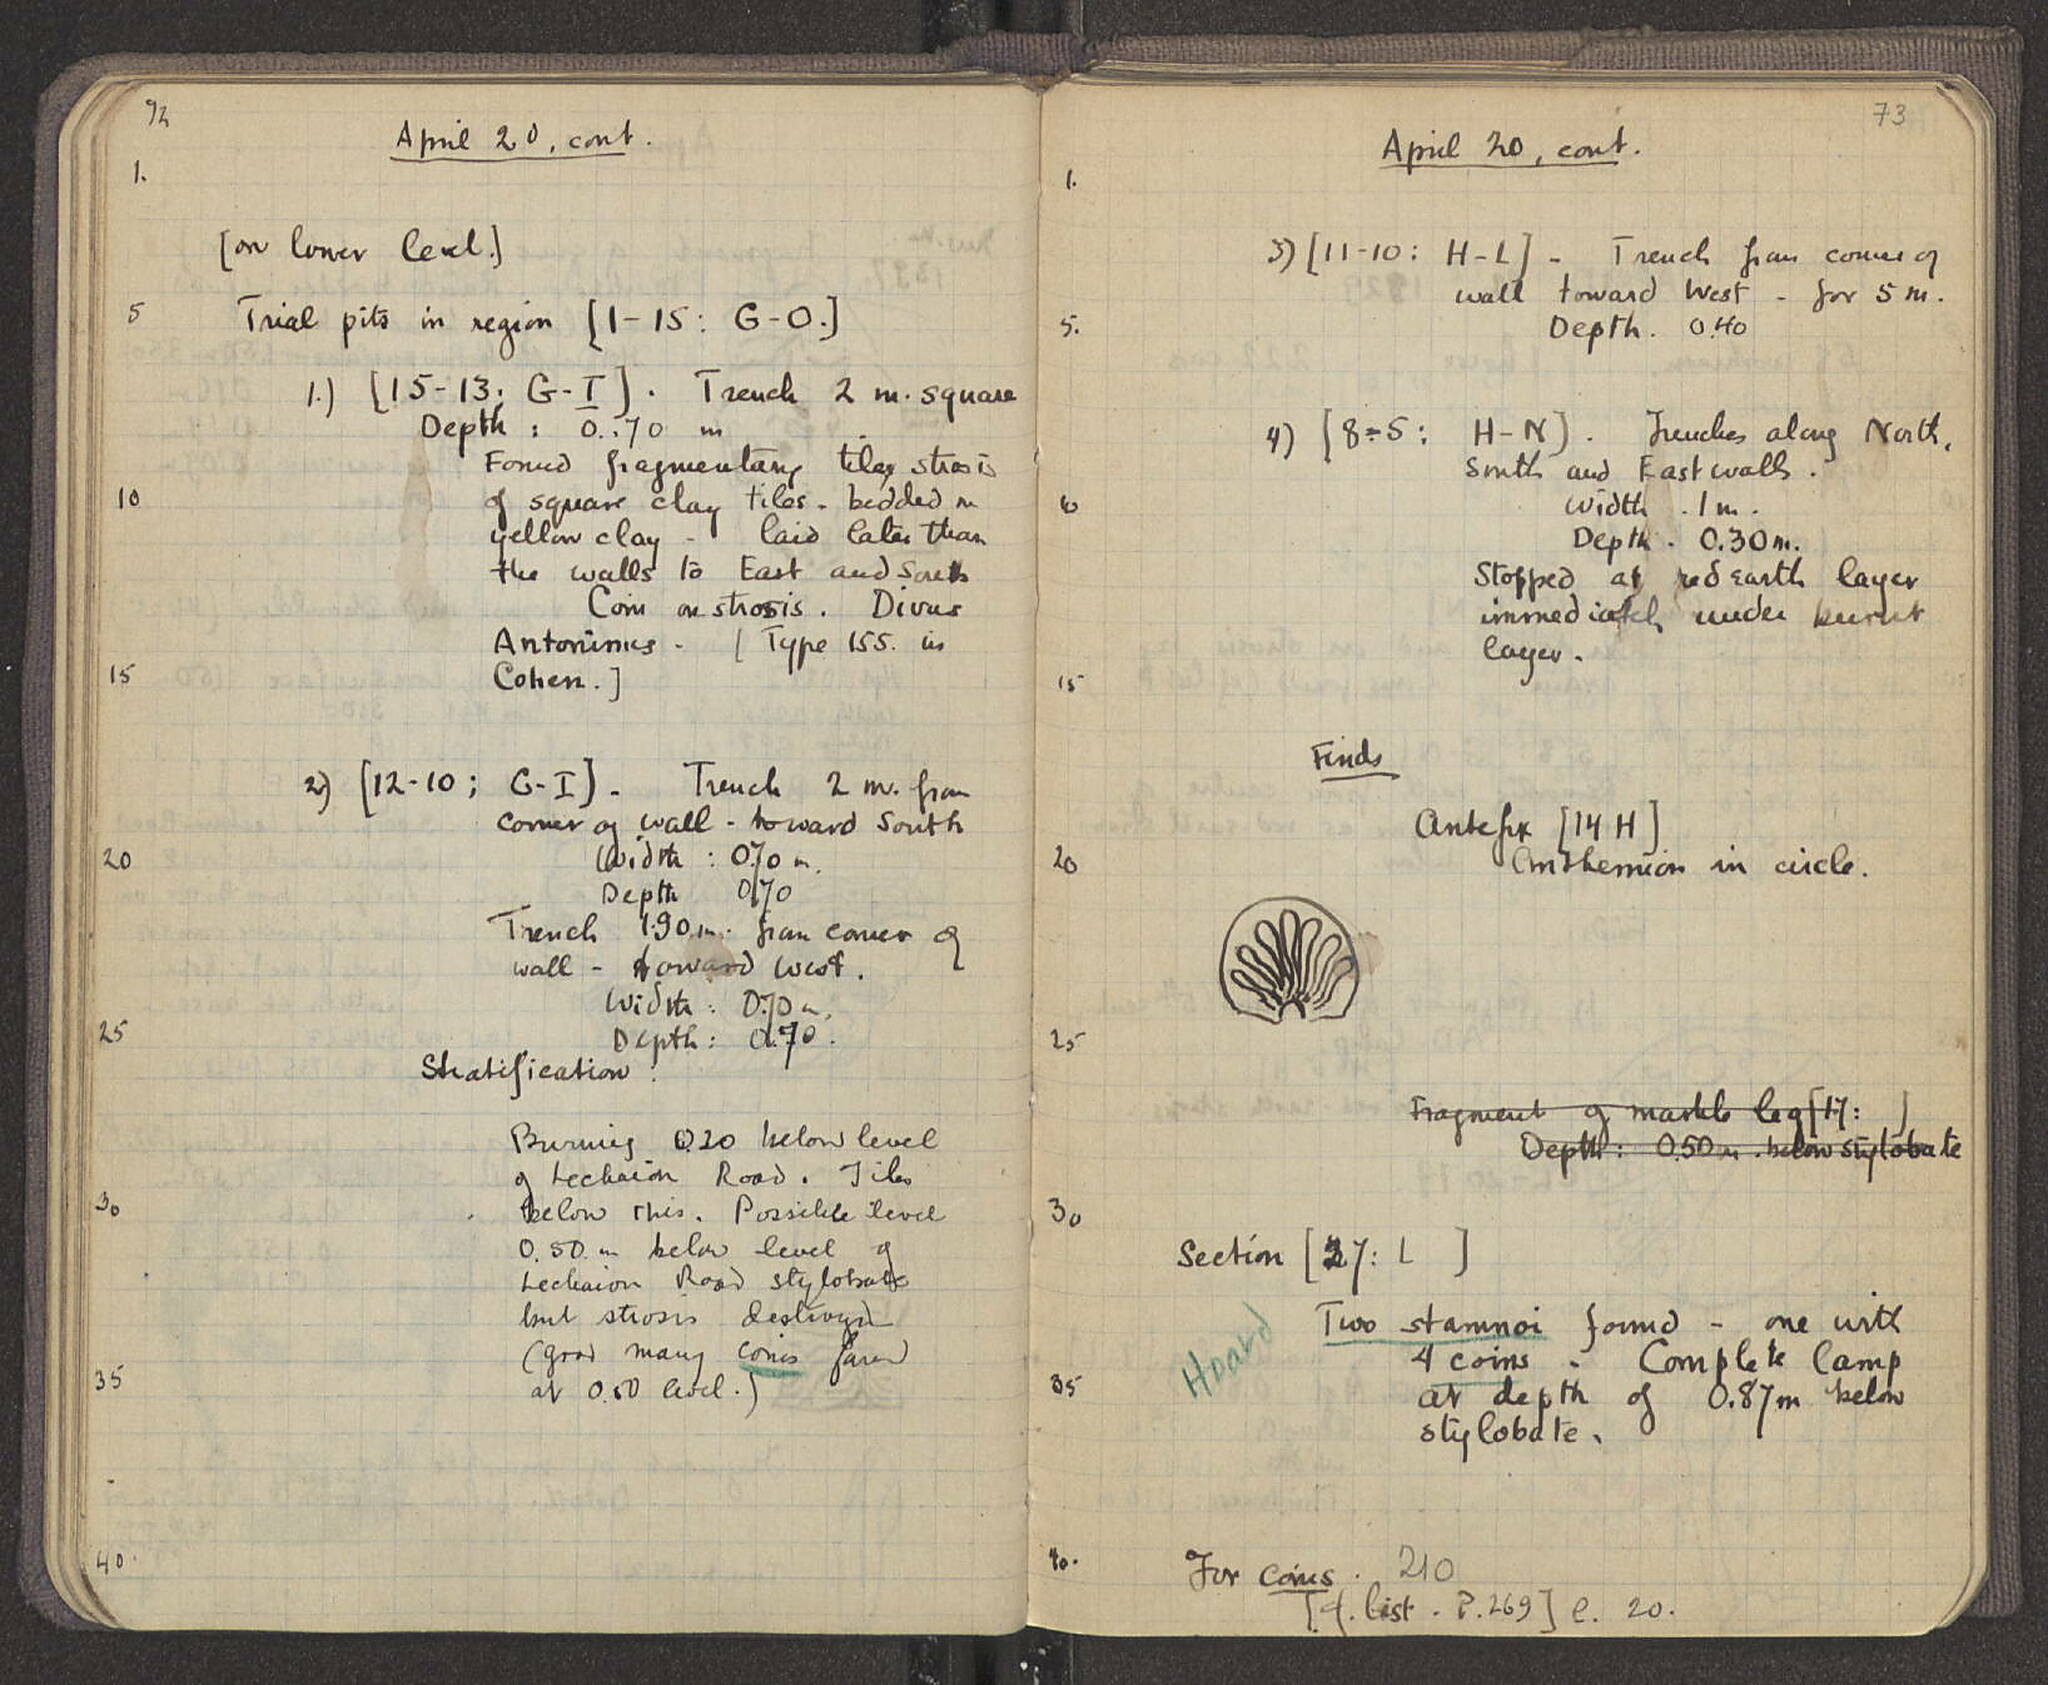 72
April 20, cont.
1.
[on lower level.]
5 Trial pits in region [1-15: G-O.]
1.) [15-13; G-I]. Trench 2 m. square
Depth : 0.70 m
Found fragmentary tiles strosis
10 of square clay tiles - bedded in
yellow clay - laid later than
the walls to East and South
Coin on strosis. Divus
Antoninus - [Type 155. in
15 Cohen.]
2) [12-10; G-I] - Trench 2 m. from
corner of wall - toward South
20 Width : 0.70 m.
Depth 0.70
Trench 1.90 m. from corner of
wall - toward West.
Width : 0.70 m.
25 Depth : 0.70.
Stratification :
Burning 0.20 below level
of Lechaion Road. Tiles
30 below this. Possible level
0.50 m below level of
Lechaion Road stylobate
but strosis destroyed
(good many coins found
35 at 0.50 level.)
40.
73
April 20, cont.
1.
3) [11-10: H-L] - Trench from corner of
wall toward West - for 5 m.
5. Depth. 0.40
4) [8-5: H-N]. Trenches along North,
South and East walls.
10 Width . 1 m.
Depth . 0.30 m.
Stopped at red earth layer
immediately under burnt
layer.
15
Finds
Antefix [14 H]
20 Anthemion in circle.
25
Fragment of marble leg [17: ]
Depth : 0.50 m. below stylobate
30
Section [27: L ]
Hoard
Two stamnoi found - one with
4 coins . Complete lamp
35 at depth of 0.87 m below
stylobate.
40. For coins. 210
[cf. list . P. 269] l. 20.